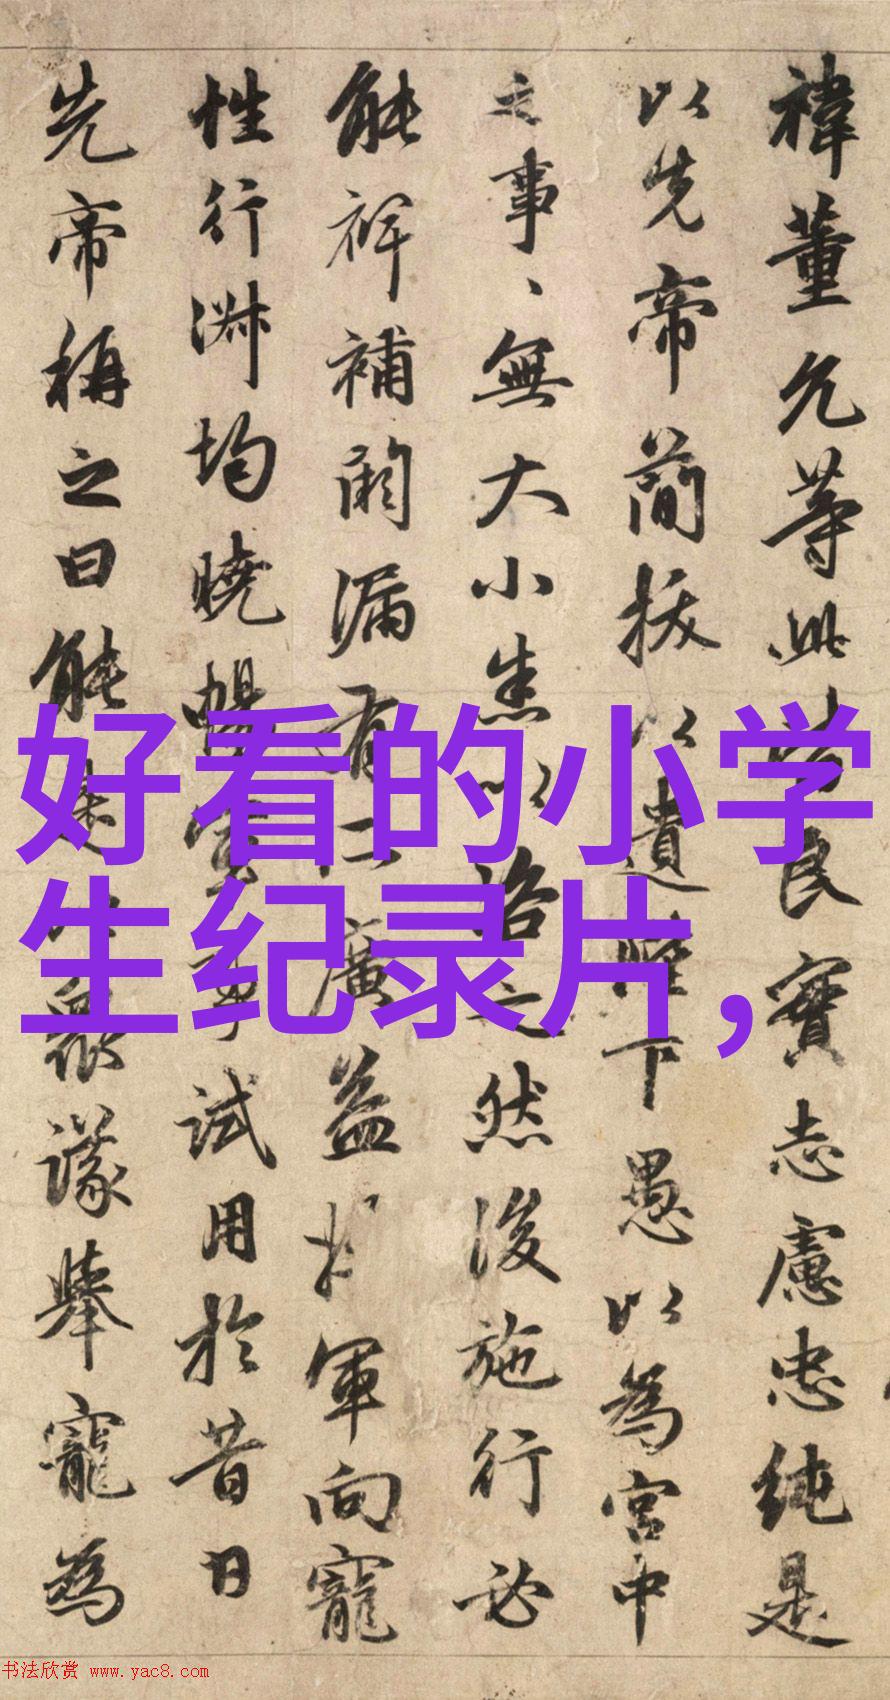 禕董允等此皆良實志慮忠純是
以先帝簡拔以遺陛下愚以為宮中
之事、無大小悉以咨之然後施行必
能裨補闕漏有所廣益將軍向寵
性行淑均曉暢軍事試用於昔日
先帝稱之曰能是以衆議舉寵為
好看的小学
生纪录片,
书法欣赏 www.yac8.com